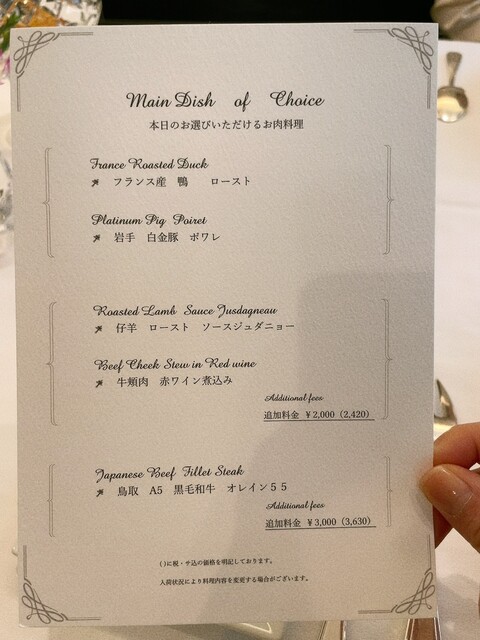 Main Dish of Choice
本日のお選びいただけるお肉料理
France Roasted Duck
フランス産 鴨 ロースト
Platinum Pig Poiret
岩手 白金豚 ポワレ
Roasted Lamb Sauce Jusdagneau
仔羊 ロースト ソースジュダニョー
Beef Cheek Stew in Red wine
牛頬肉 赤ワイン煮込み
Additional fees
追加料金 ¥2,000（2,420）
Japanese Beef Fillet Steak
鳥取 A5 黒毛和牛 オレイン５５
Additional fees
追加料金 ¥3,000（3,630）
( )に税・サ込の価格を明記しております。
入荷状況により料理内容を変更する場合がございます。